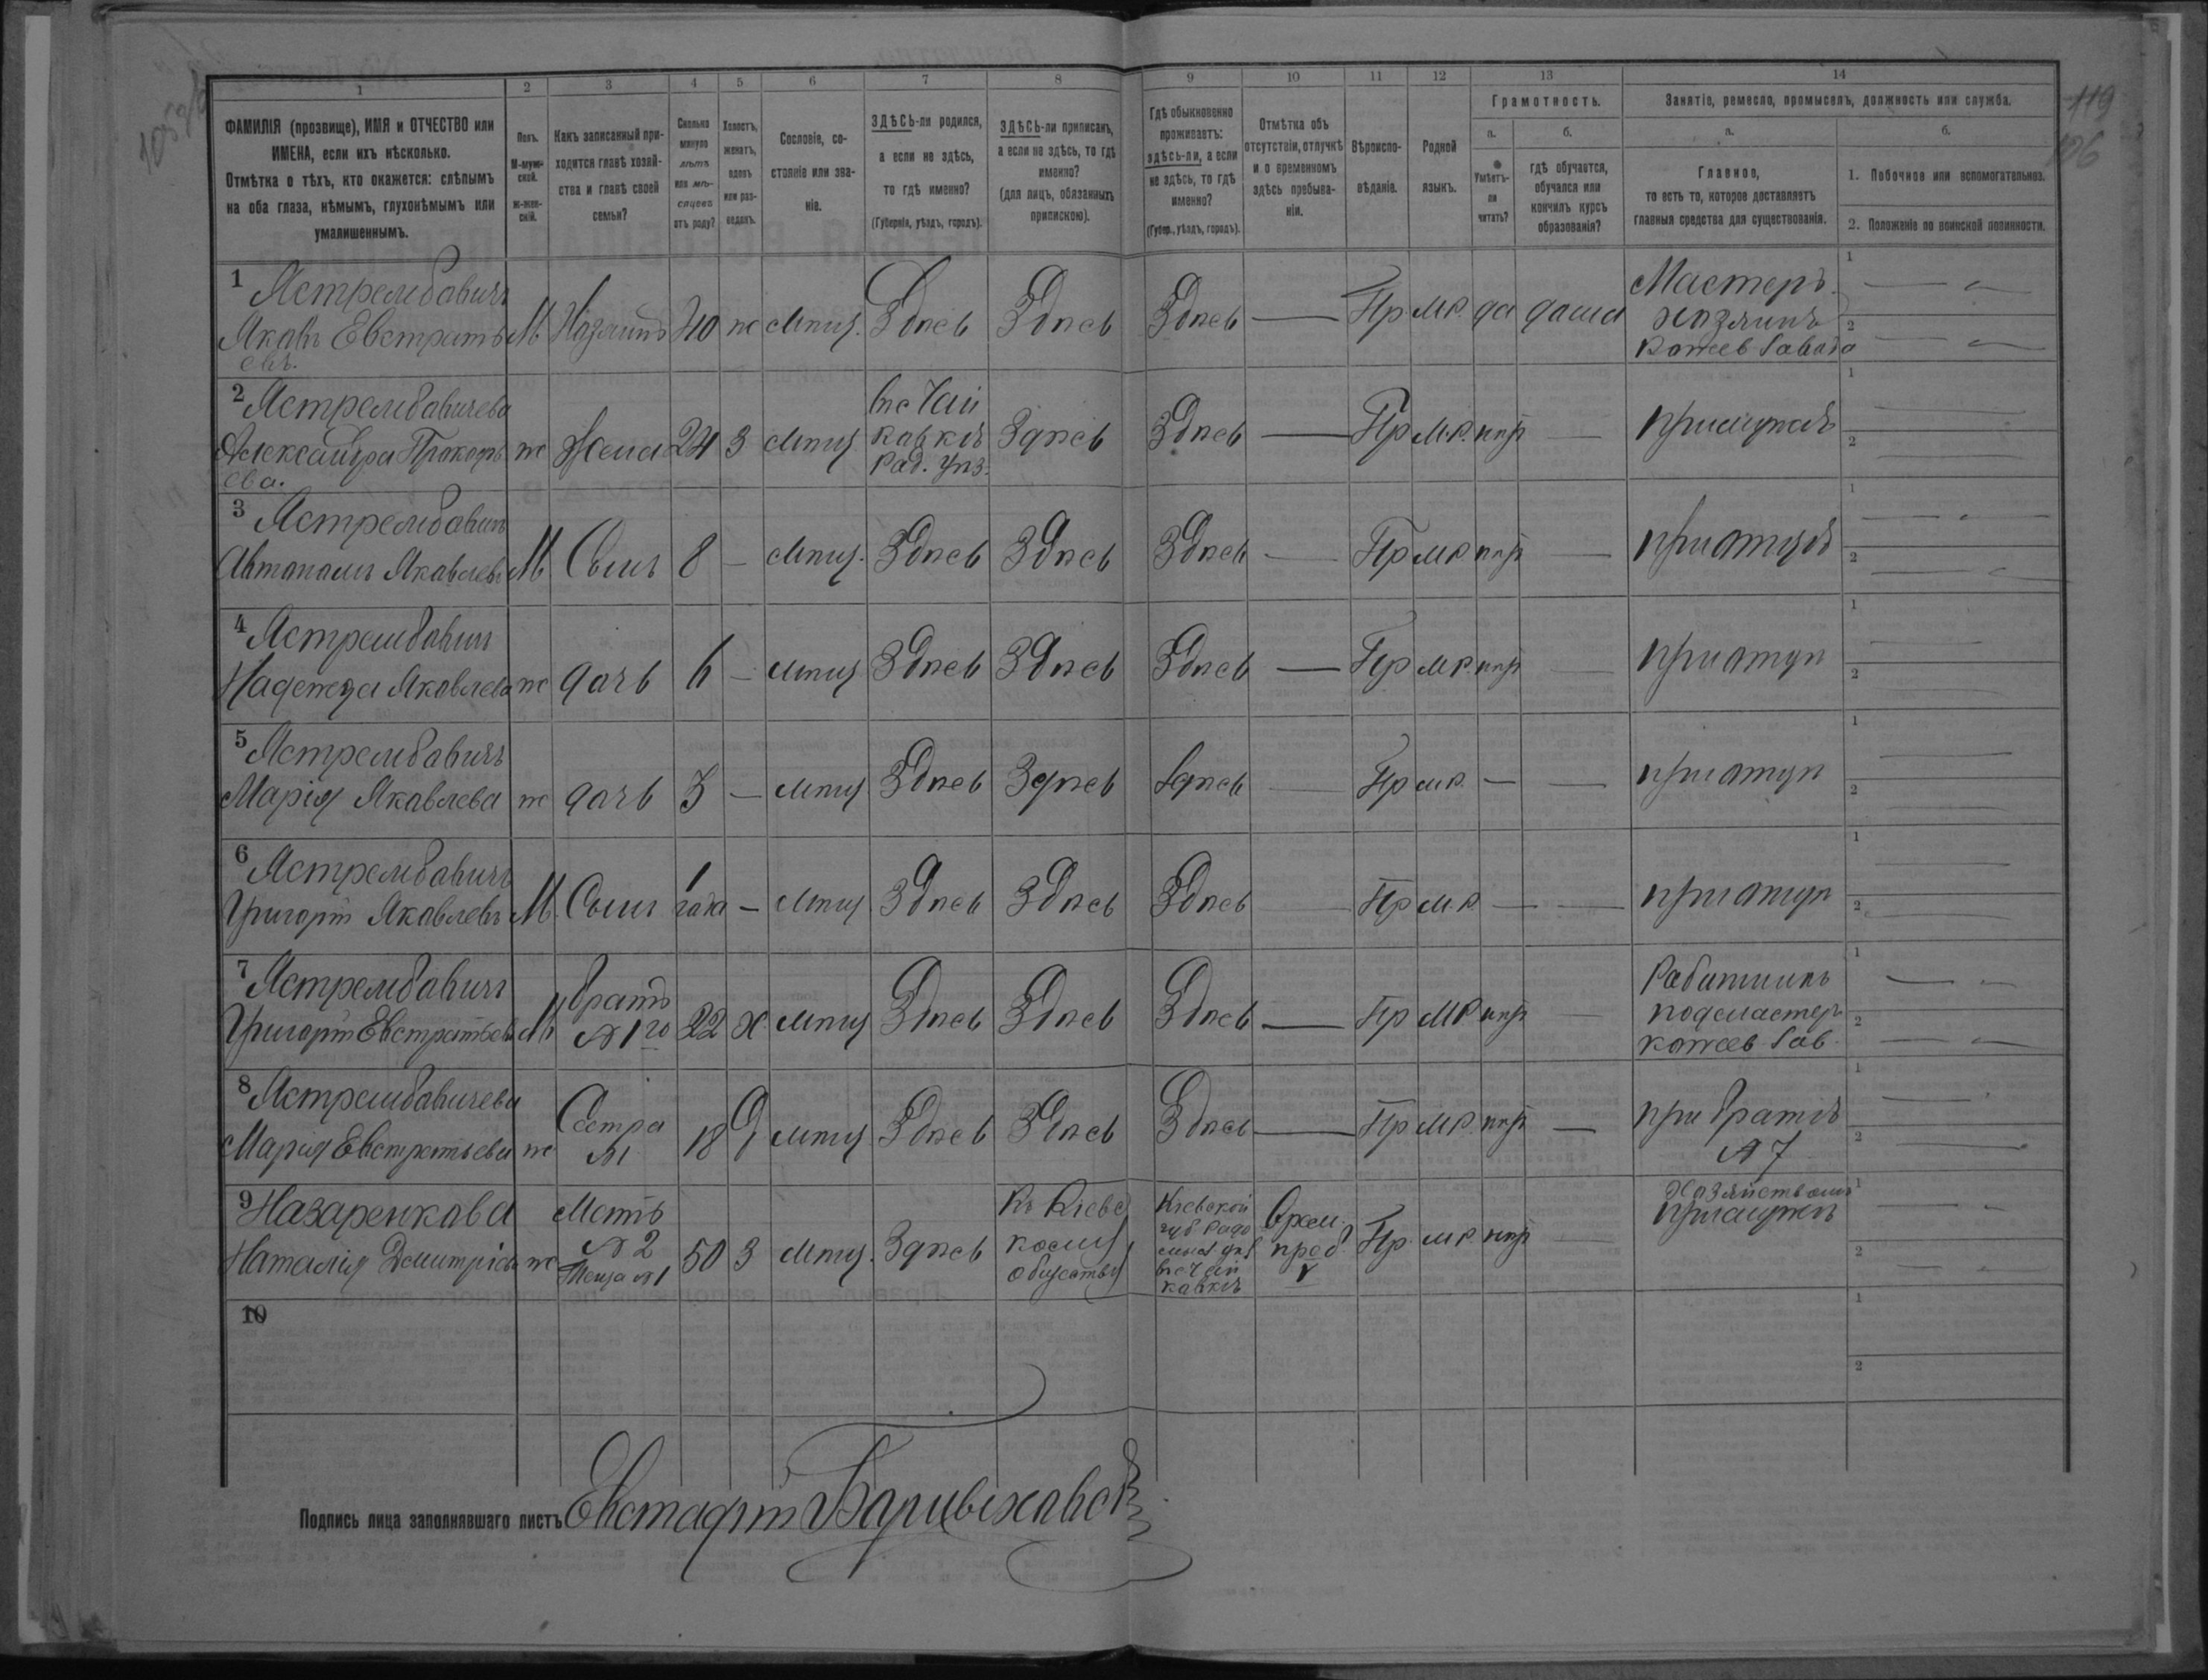 1 2 3 4 5 6 7 8 9 10 11 12 13 14
ФАМИЛІЯ (прозвище), ИМЯ и ОТЧЕСТВО или
ИМЕНА, если ихъ нѣсколько.
Отмѣтка о тѣхъ, кто окажется: слѣпымъ
на оба глаза, нѣмымъ, глухонѣмымъ или
умалишеннымъ.
Полъ.
М-муж-
ской.
ж-жен-
скій.
Какъ записанный при-
ходится главѣ хозяй-
ства и главѣ своей
семьи?
Сколько
минуло
лѣтъ
или мѣ-
сяцевъ
отъ роду?
Холостъ,
женатъ,
вдовъ
или раз-
веденъ.
Сословіе, со-
стояніе или зва-
ніе.
ЗДѢСЬ-ли родился,
а если не здѣсь,
то гдѣ именно?
(Губернія, уѣздъ, городъ).
ЗДѢСЬ-ли приписанъ,
а если не здѣсь, то гдѣ
именно?
(для лицъ, обязанныхъ
припискою).
Гдѣ обыкновенно
проживаетъ:
здѣсь-ли, а если
не здѣсь, то гдѣ
именно?
(Губер., уѣздъ, городъ).
Отмѣтка объ
отсутствіи, отлучкѣ
и о временномъ
здѣсь пребыва-
ніи.
Вѣроиспо-
вѣданіе.
Родной
языкъ.
Грамотность.
а.
Умѣетъ-
ли
читать?
б.
гдѣ обучается,
обучался или
кончилъ курсъ
образованія?
Занятіе, ремесло, промыселъ, должность или служба.
а.
Главное,
то есть то, которое доставляетъ
главныя средства для существованія.
б.
1. Побочное или вспомогательное.
2. Положеніе по воинской повинности.
119
106
1 Ястрембавичъ
Якавъ Евстратъ
евъ.
М Хазяинъ 40 ж мпщ. Здѣсь Здѣсь Здѣсь — Пр МР. да дома
Мастеръ
хазяинъ
кожев завода
2 Ястрембавичева
Александра Прокофь
ева.
ж Жена 24 З мпщ
Рад. уѣз.
Здѣсь Здѣсь — Пр М.Р. нѣт — примужѣ
3 Ястрембавичъ
Автаномъ Якавлевъ
М Сынъ 8 — мпщ. Здѣсь Здѣсь Здѣсь — Пр МР нѣт — приотцѣ
4 Ястрембавичъ
Надежда Яковлева
ж дочь 6 — мпщ Здѣсь Здѣсь Здѣсь — Пр МР. нѣт — приотцѣ
5 Ястрембавичъ
Марія Якавлева
ж дочь 3 — мпщ Здѣсь Здѣсь Здѣсь — Пр МР. — — приотцѣ
6 Ястрембавичъ
Григорій Яковлевъ
М. Сынъ 1 года — мпщ Здѣсь Здѣсь Здѣсь — Пр М.Р — — приотцѣ
7 Ястрембавичъ
Григорій Евстратьевъ
М братъ
№ 1го
22 Х мпщ Здѣсь Здѣсь Здѣсь — Пр МР нѣт —
Работникъ
подмастер
кожев зав.
8 Ястрембавичева
Марія Евстратьева
ж Сестра
№1
18 Д мпщ Здѣсь Здѣсь Здѣсь — Пр МР. нѣт — при братѣ
№ 7
9 Назаренкова
Наталія Дмитріева
ж Мать
№ 2
Теща №1
50 З мпщ. Здѣсь
Общества
Кіевской
губ Радо
Врем.
преб.
Пр. МР. нѣт —
Хазяйствомъ
примужѣ
10
Подпись лица заполнявшаго листъ Евстафій